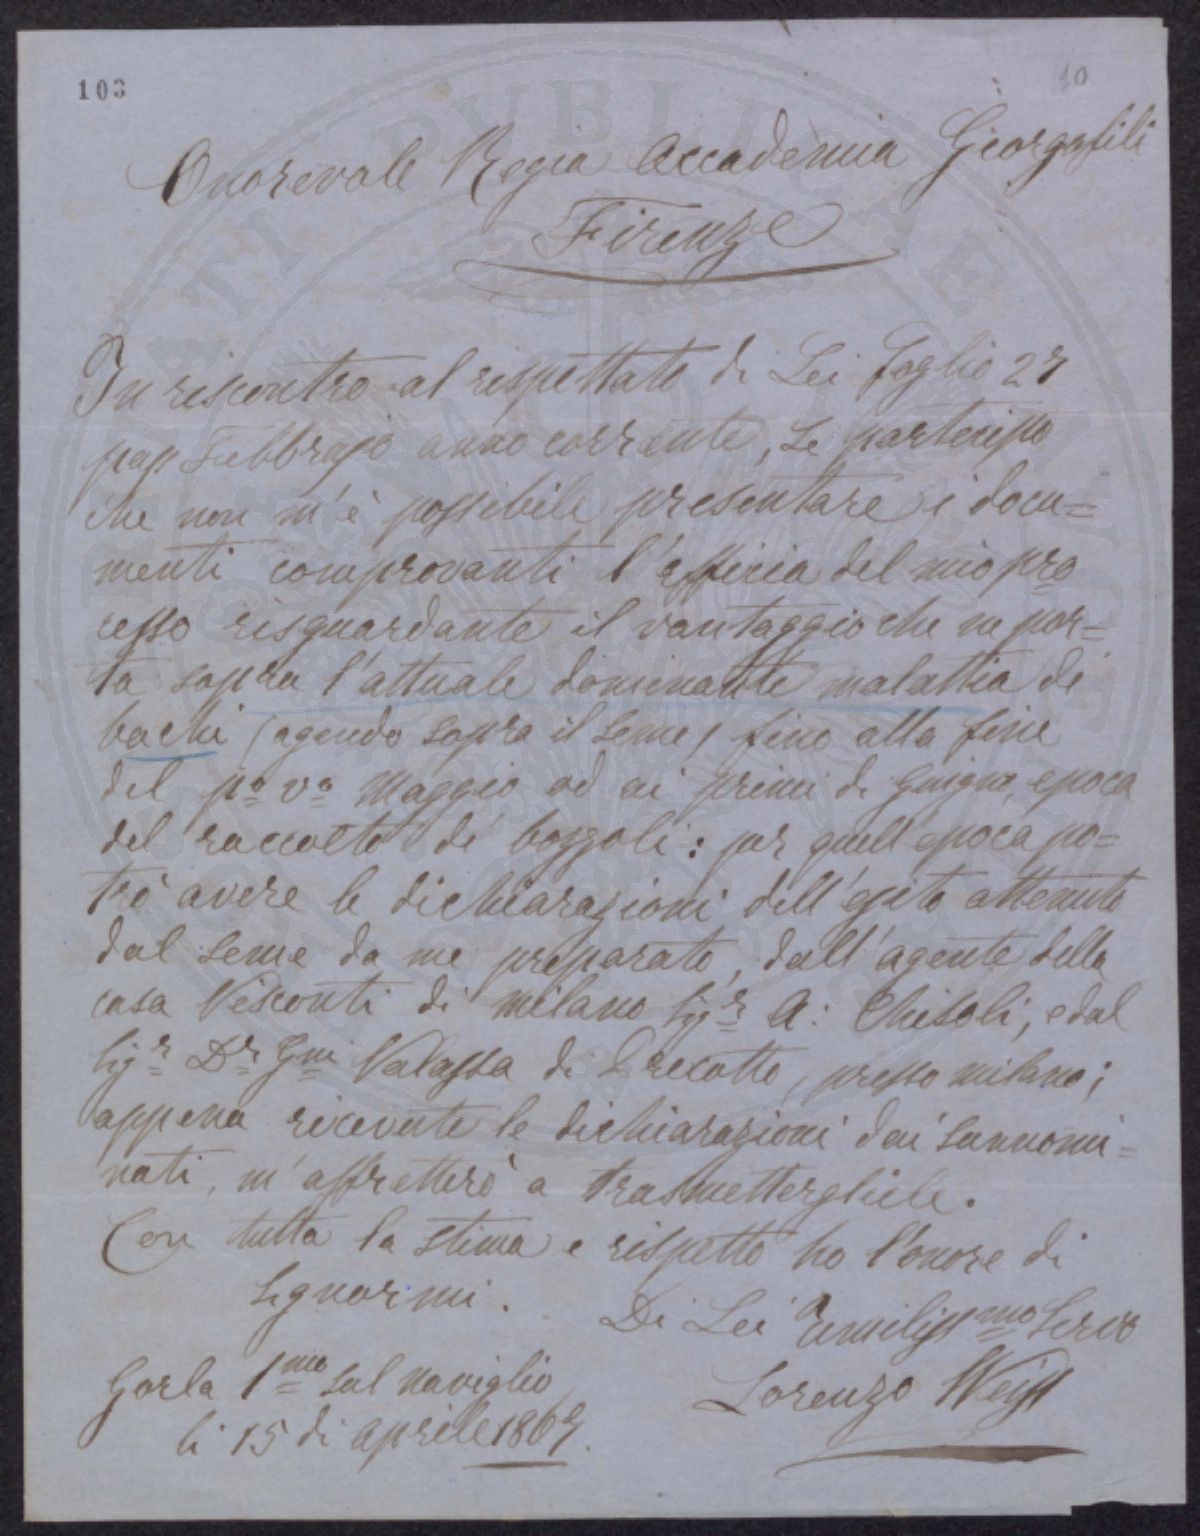 103
10
Onorevole Regia Accademia Georgofili
Firenze
In riscontro al rispettato di Lei foglio 27
pap Febbrajo anno corrente, Le partecipo
che non m'è possibile presentare i docu=
menti comprovanti l'efficia del mio pro
cesso risguardante il vantaggio che ne por=
ta sopra l'attuale dominante malattia di
bachi (agendo sopra il seme) fino alla fine
del po vo Maggio od ai primi di Guigno, epoca
del raccolto de' bozzoli: per quell'epoca po=
trò avere le dichiarazioni dell'esito ottenuto
dal seme da me preparato, dall'agente della
casa Visconti di Milano Sigr A: Ghisoli, e dal
Sigr Dr Gni Valassa di Precotto, presso Milano;
appena ricevute le dichiarazioni dai sunnomi=
nati, m'affretterò a trasmettergliele.
Con tutta la stima e rispetto ho l'onore di
segnarmi.
Di Lei umilissmo Servo
Lorenzo Weiss
Gorla 1mo sul naviglio
li 15 di aprile 1867.